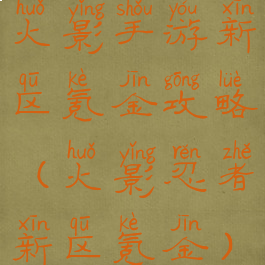 huǒ yǐng shǒu yóu xīn
火影手游新
qū kè jīn gōng lüè
区氪金攻略
huǒ yǐng rěn zhě
（火影忍者
xīn qū kè jīn
新区氪金）